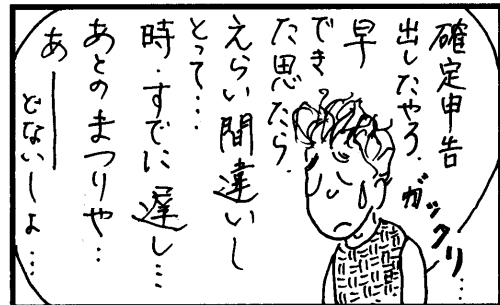 確定申告
出したやろ.
早
でき
た思たら.
えらい間違いし
とって…
時・すでに遅し…
あとのまつりや…
あーどないしょ…
ガックリ…